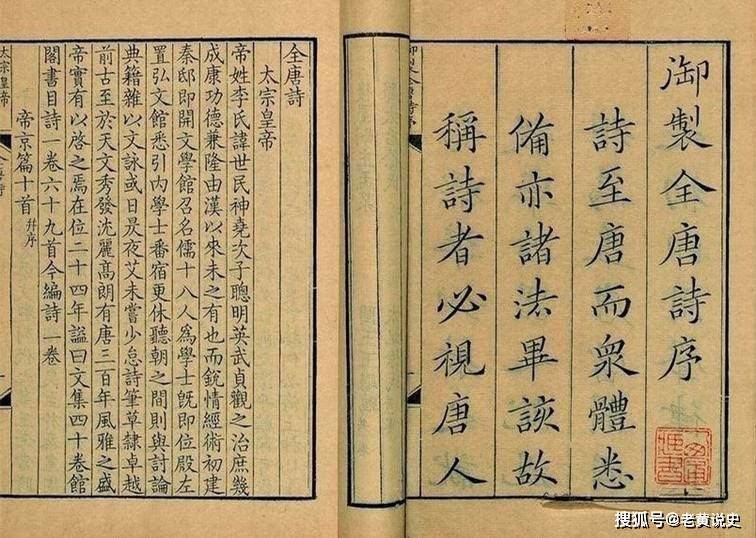 御製全唐詩序
詩至唐而衆體悉
備亦諸法畢該故
稱詩者必視唐人
全唐詩
太宗皇帝
帝姓李氏諱世民神堯次子聰明英武貞觀之治庶幾
成康功德兼隆由漢以來未之有也而銳情經術初建
秦邸即開文學館召名儒十八人爲學士既即位殿左
置弘文館悉引內學士番宿更休聽朝之間則與討論
典籍雜以文詠或日昃夜艾未嘗少怠詩筆草隸卓越
前古至於天文秀發沈麗高朗有唐三百年風雅之盛
帝實有以啓之焉在位二十四年諡曰文集四十卷館
閣書目詩一卷六十九首今編詩一卷
帝京篇十首 并序
太宗皇帝
搜狐号@老黄说史